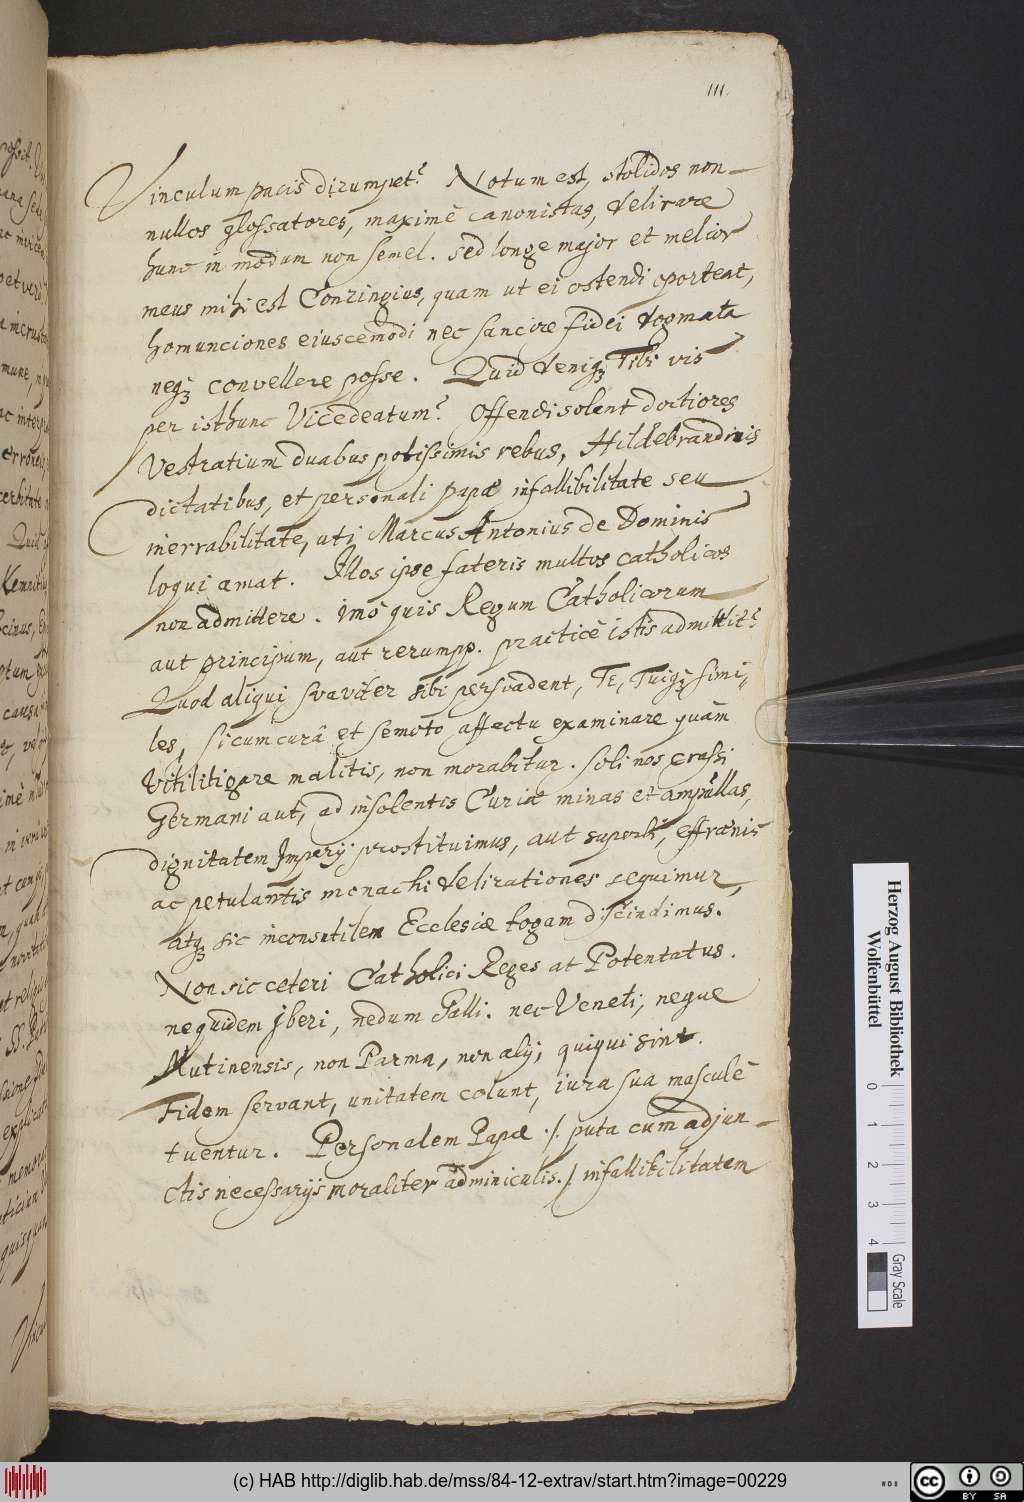 111.
Vinculum pacis dirumpet? Notum est, stolidos non-
nullos glossatores, maximè canonistas, delirare
hunc in modum non semel. sed longe major et melior
meus mihi est Conringius, quam ut ei ostendi oporteat,
homunciones eiuscemodi nec sancire fidei dogmata
neqꝫ convellere posse. Quid deniqꝫ Tibi vis
per isthunc Vicedeatum? Offendi solent doctiores
Vestratium duabus potissimis rebus, Hildebrandinis
dictatibus, et personali papæ infallibilitate seu
inerrabilitate, uti Marcus Antonius de Dominis
loqui amat. Illos ipse fateris multos catholicos
non admittere. imò quis Regum Catholicorum
aut principum, aut rerumpp. practicè istis admittit?
Quod aliqui svaviter sibi persvadent, Te, Tuiqꝫ simi-
les, si cum curâ et semoto affectu examinare quàm
Vitilitigare malitis, non morabitur. soli nos crassi
Germani aut, ad insolentis Curiæ minas et ampullas,
dignitatem Imperij prostituimus, aut superbi, effrænis
ac petulantis monachi delirationes sequimur,
atqꝫ sic inconsutilem Ecclesiæ togam discindimus.
Non sic ceteri Catholici Reges at Potentatus.
ne quidem Iberi, nedum Galli. nec Veneti, neque
Mutinensis, non Parma, non alij, quiqui sint.
Fidem servant, unitatem colunt, iura sua masculè
tuentur. Personalem Papæ ./. puta cum adjun-
ctis necessarijs moraliter adminiculis ./. infallibilitatem
Herzog August Bibliothek
Wolfenbüttel
0 1 2 3 4
Gray Scale
(c) HAB http://diglib.hab.de/mss/84-12-extrav/start.htm?image=00229
cc BY SA